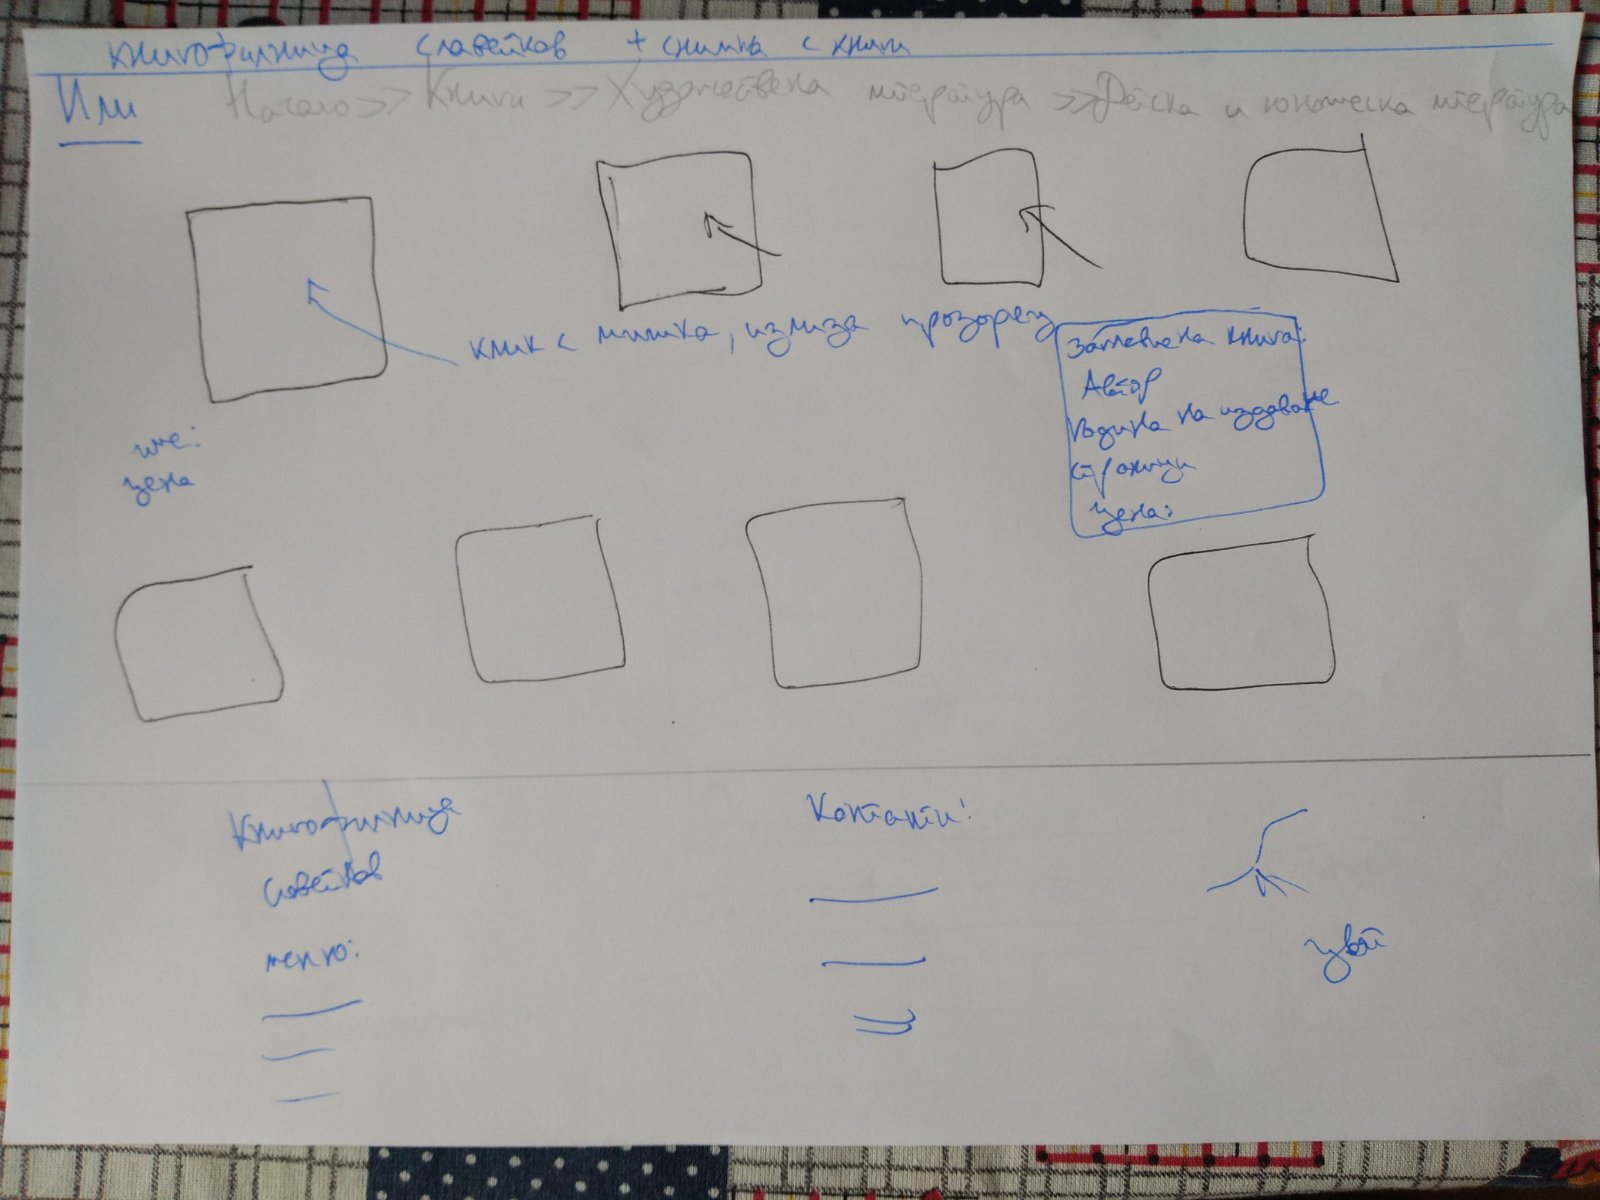 книгофилница славейков + снимка с книги
Или Начало >> Книги >> Художествена литература >> Детска и юношеска литература
клик с мишка, излиза прозорец
Заглавие на книга:
Автор
година на издаване
страници
цена:
име:
цена
Книгофилница
Славейков
меню:
Контакти:
цвят